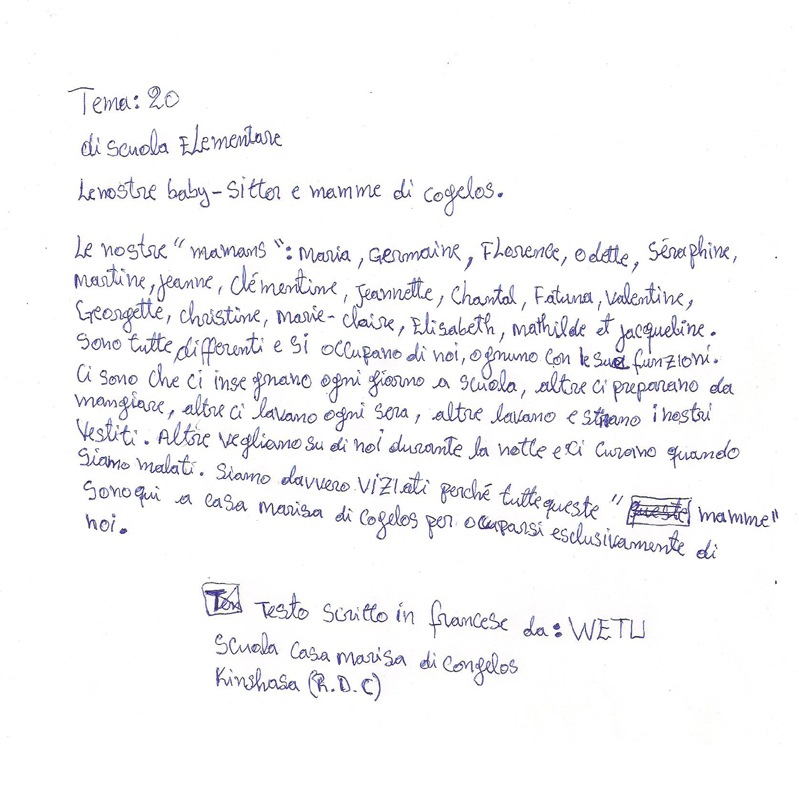 Tema: 20
di scuola Elementare
Le nostre baby-sitter e mamme di cogelos.
Le nostre "mamans": Maria, Germaine, Florence, Odette, Séraphine,
Martine, Jeanne, Clémentine, Jeannette, Chantal, Fatuna, Valentine,
Georgette, christine, Marie-claire, Elisabeth, Mathilde et jacqueline.
Sono tutte differenti e si occupano di noi, ognuno con le sue funzioni.
Ci sono che ci insegnano ogni giorno a scuola, altre ci preparano da
mangiare, altre ci lavano ogni sera, altre lavano e stirano i nostri
vestiti. Altre vegliano su di noi durante la notte e ci curano quando
siamo malati. Siamo davvero viziati perché tutte queste " queste mamme"
sono qui a casa marisa di cogelos per occuparsi esclusivamente di
noi.
Testo scritto in francese da: WETU
Scuola casa marisa di congelos
Kinshasa (R.D.C)